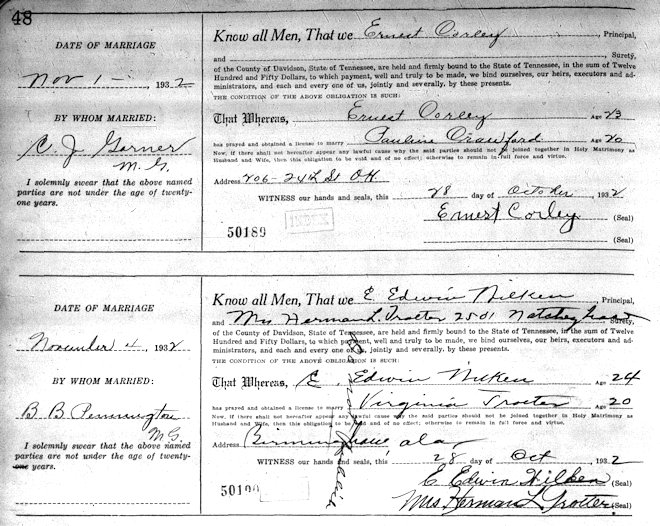 48
DATE OF MARRIAGE
Nov 1 — 1932
BY WHOM MARRIED:
C. J. Garner
M. G.
I solemnly swear that the above named
parties are not under the age of twenty-
one years.
Know all Men, That we Ernest Corley Principal,
and Surety,
of the County of Davidson, State of Tennessee, are held and firmly bound to the State of Tennessee, in the sum of Twelve
Hundred and Fifty Dollars, to which payment, well and truly to be made, we bind ourselves, our heirs, executors and ad-
ministrators, and each and every one of us, jointly and severally, by these presents.
THE CONDITION OF THE ABOVE OBLIGATION IS SUCH:
That Whereas, Ernest Corley Age 23
has prayed and obtained a license to marry Pauline Crawford Age 20
Now, if there shall not hereafter appear any lawful cause why the said parties should not be joined together in Holy Matrimony as
Husband and Wife, then this obligation to be void and of no effect; otherwise to remain in full force and virtue.
Address 206-24th St
WITNESS our hands and seals, this 28 day of October 1932
INDEXED
50189
Ernest Corley (Seal)
(Seal)
DATE OF MARRIAGE
November 4, 1932
BY WHOM MARRIED:
B B Pennington
M G.
I solemnly swear that the above named
parties are not under the age of twenty-
one years.
Know all Men, That we E. Edwin Wilken Principal,
and Mrs Herman L. Trotter 2501 Surety,
of the County of Davidson, State of Tennessee, are held and firmly bound to the State of Tennessee, in the sum of Twelve
Hundred and Fifty Dollars, to which payment, well and truly to be made, we bind ourselves, our heirs, executors and ad-
ministrators, and each and every one of us, jointly and severally, by these presents.
THE CONDITION OF THE ABOVE OBLIGATION IS SUCH:
That Whereas, E. Edwin Wilken Age 24
has prayed and obtained a license to marry Virginia Trotter Age 20
Now, if there shall not hereafter appear any lawful cause why the said parties should not be joined together in Holy Matrimony as
Husband and Wife, then this obligation to be void and of no effect; otherwise to remain in full force and virtue.
Address Birmingham, Ala
WITNESS our hands and seals, this 28 day of Oct 1932
50190
E Edwin Wilken (Seal)
Mrs. Herman L Trotter (Seal)